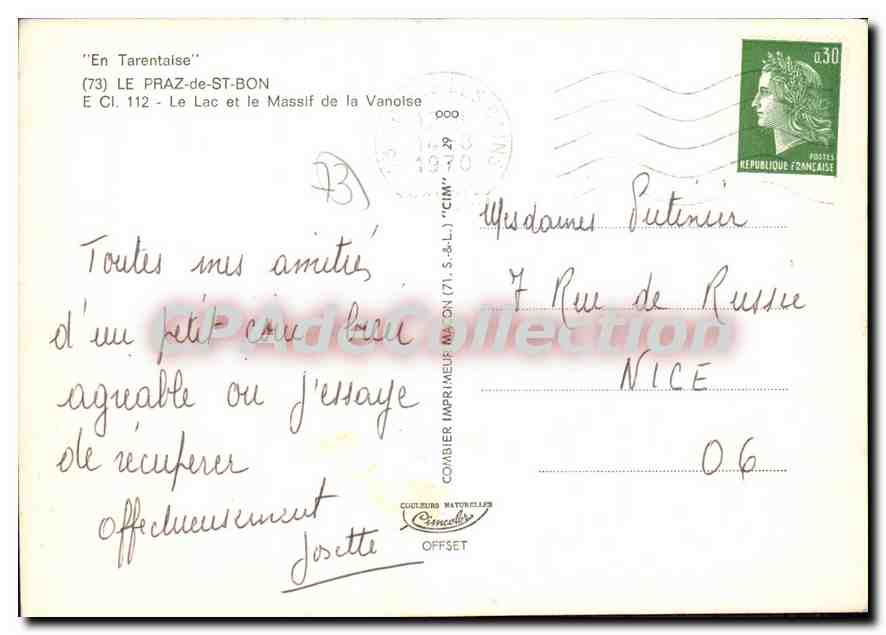 "En Tarentaise"
(73) LE PRAZ-de-ST-BON
E Cl. 112 - Le Lac et le Massif de la Vanoise
0,30
POSTES
REPUBLIQUE FRANÇAISE
1970
73
Toutes mes amitiés
d'un petit coin bien
agreable ou j'essaye
de récuperer
affectueusement
Josette
COMBIER IMPRIMEUR MACON (71, S.-&-L.) "CIM"
Mesdames
7 Rue de Russie
NICE
06
COULEURS NATURELLES
Cimcolor
OFFSET
CPAdeCollection